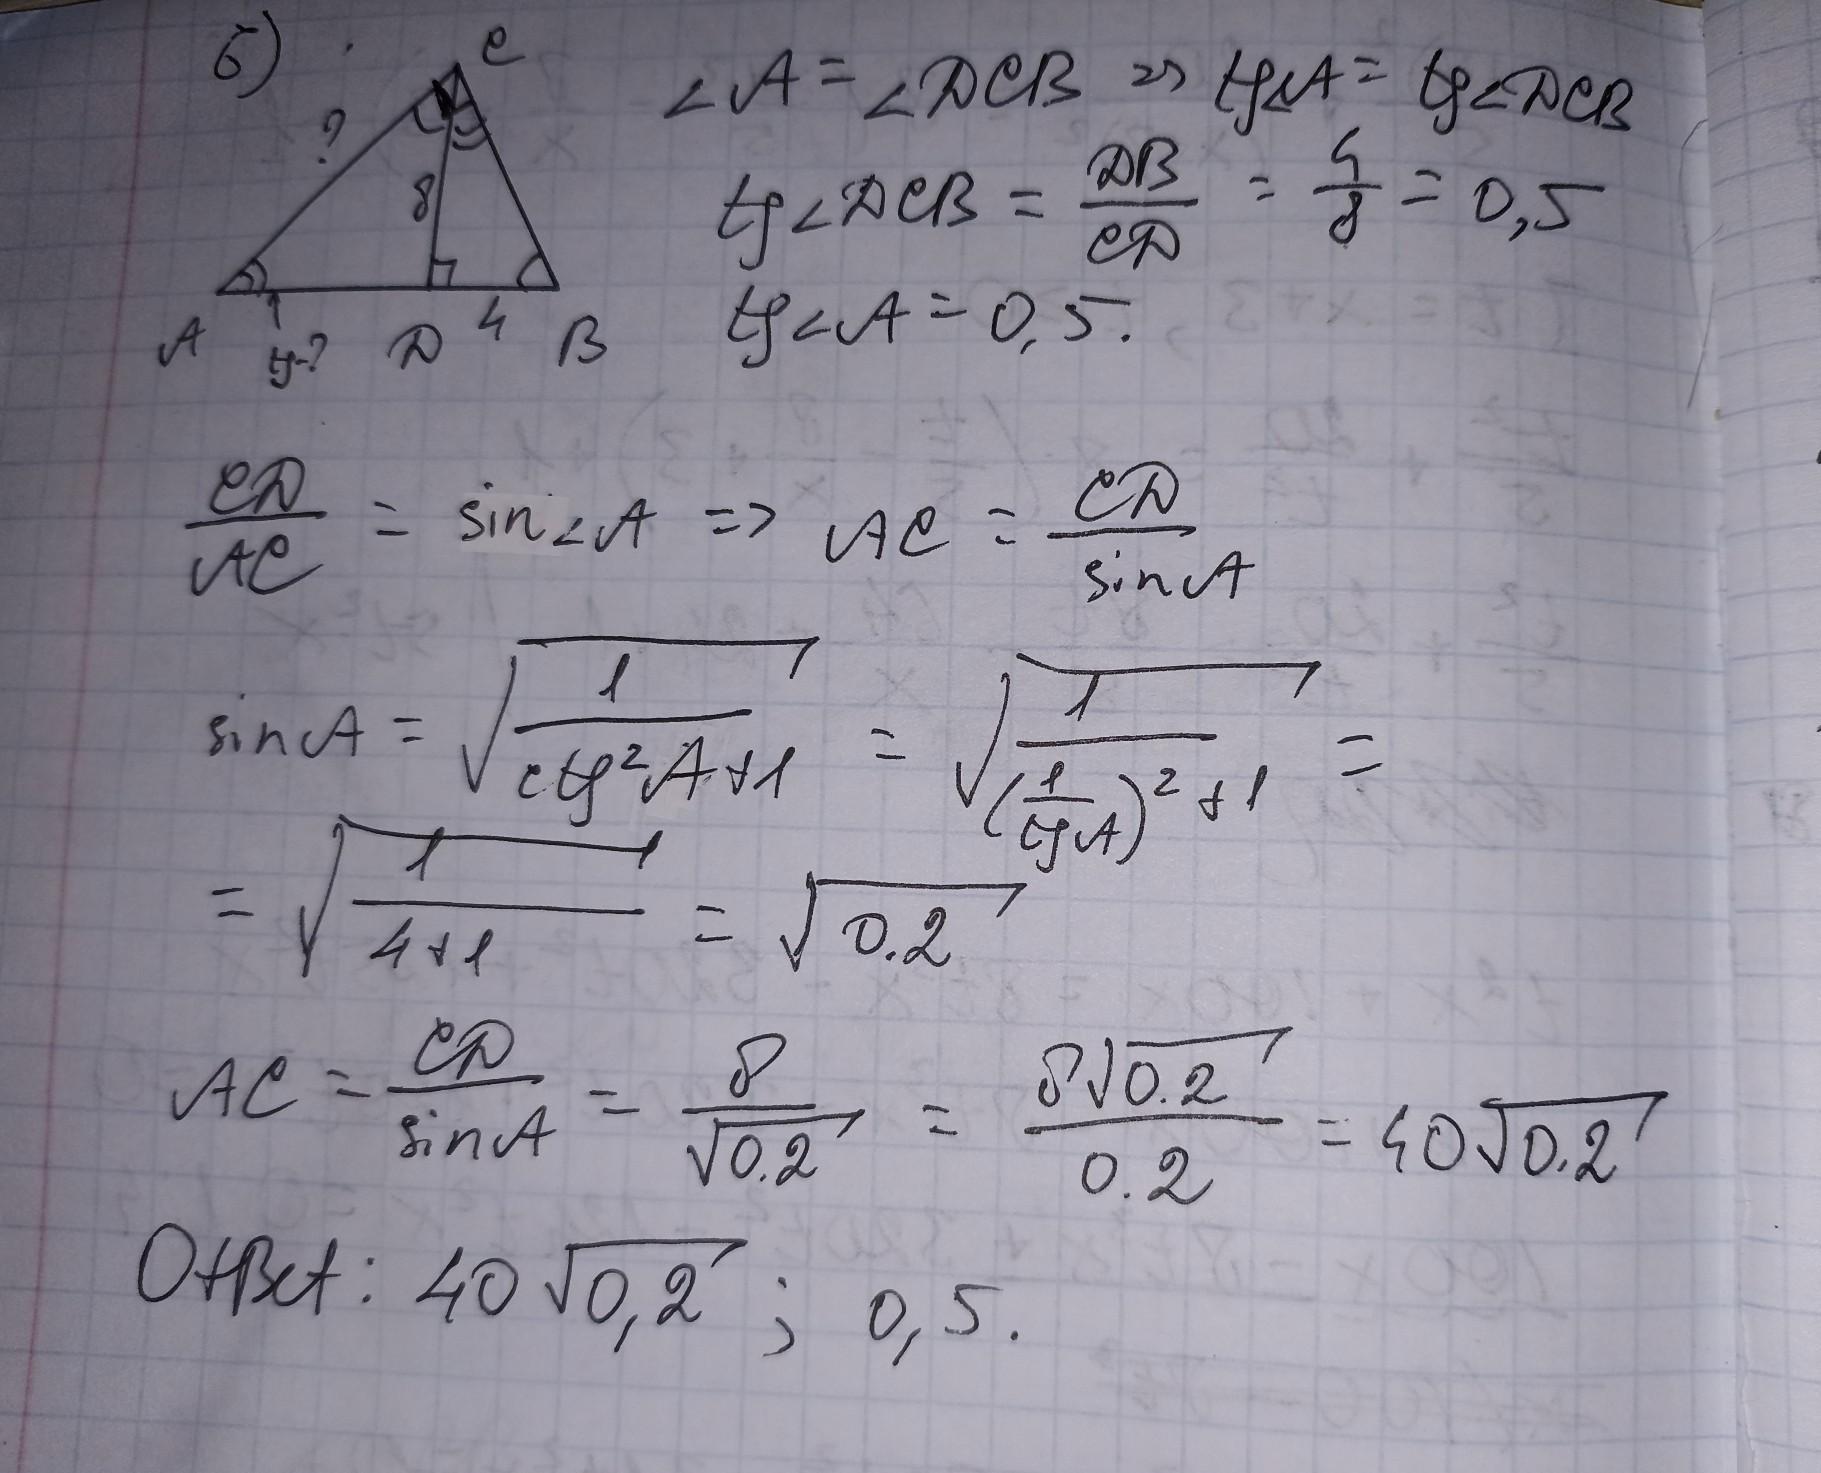 б)
C
?
8
A
tg-?
D
4
B
∠A = ∠DCB => tg∠A = tg∠DCB
tg∠DCB = DB/CD = 4/8 = 0,5
tg∠A = 0,5.
CD/AC = sin∠A => AC = CD/sinA
sinA = √(1/(ctg²A+1)) = √(1/((1/tgA)²+1)) =
= √(1/(4+1)) = √0.2
AC = CD/sinA = 8/√0.2 = 8√0.2/0.2 = 40√0.2
Ответ: 40√0,2 ; 0,5.